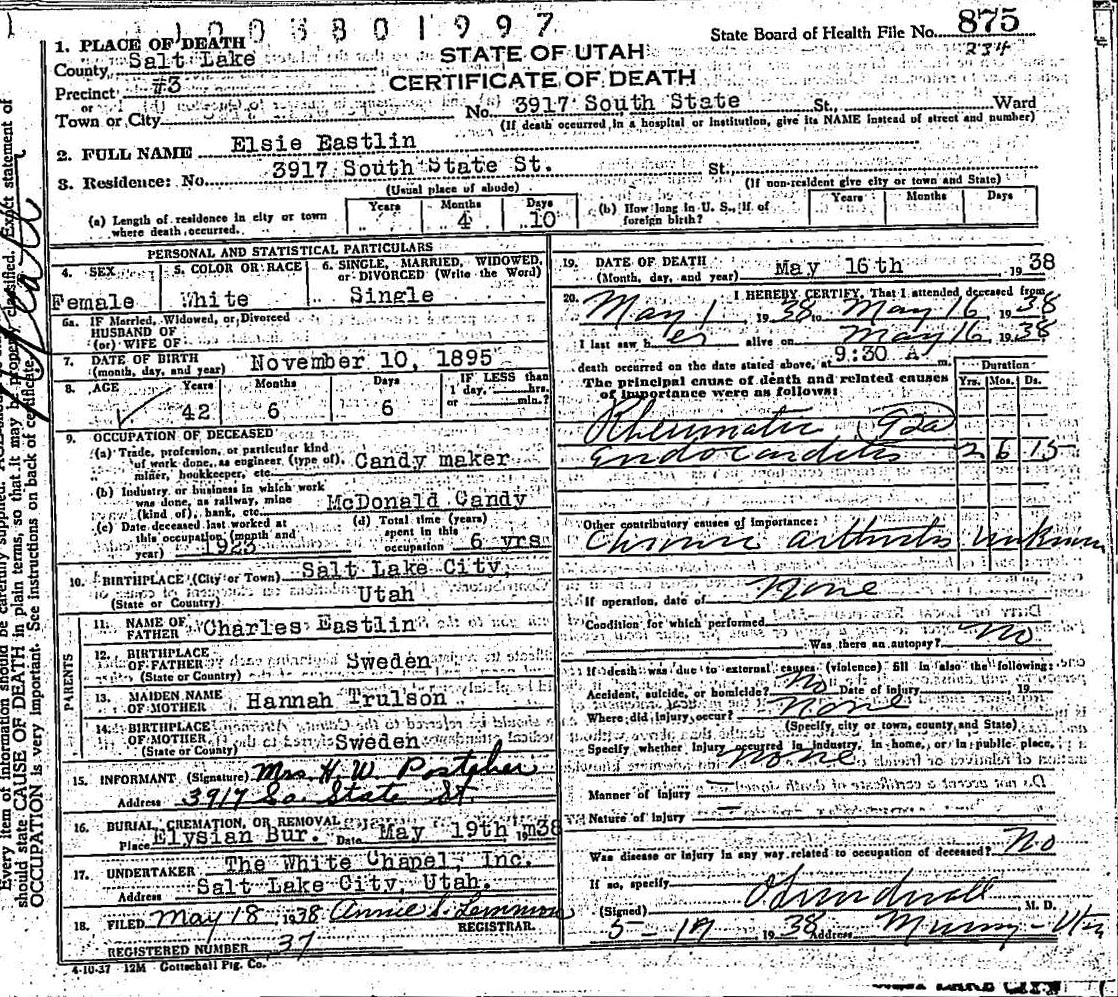 1003801997
State Board of Health File No. 875
234
STATE OF UTAH
CERTIFICATE OF DEATH
1. PLACE OF DEATH
County Salt Lake
Precinct #3
or
Town or City
No. 3917 South State St., Ward
(If death occurred in a hospital or institution, give its NAME instead of street and number)
2. FULL NAME Elsie Eastlin
3. Residence: No. 3917 South State St. St.,
(Usual place of abode)
(If non-resident give city or town and State)
(a) Length of residence in city or town where death occurred. Years Months 4 Days 10
(b) How long in U. S., if of foreign birth? Years Months Days
PERSONAL AND STATISTICAL PARTICULARS
4. SEX Female
5. COLOR OR RACE White
6. SINGLE, MARRIED, WIDOWED, or DIVORCED (Write the Word) Single
6a. IF Married, Widowed, or Divorced
HUSBAND OF
(or) WIFE OF
7. DATE OF BIRTH
(month, day, and year) November 10, 1895
8. AGE Years 42 Months 6 Days 6 IF LESS than 1 day, hrs. or min.?
9. OCCUPATION OF DECEASED
(a) Trade, profession, or particular kind of work done, as engineer (type of), miner, bookkeeper, etc. Candy maker
(b) Industry or business in which work was done, as railway, mine (kind of), bank, etc. McDonald Candy
(c) Date deceased last worked at this occupation (month and year) 1923
(d) Total time (years) spent in this occupation 6 yrs
10. BIRTHPLACE (City or Town) Salt Lake City,
(State or Country) Utah
PARENTS
11. NAME OF FATHER Charles Eastlin
12. BIRTHPLACE OF FATHER
(State or Country) Sweden
13. MAIDEN NAME OF MOTHER Hannah Trulson
14. BIRTHPLACE OF MOTHER
(State or County) Sweden
15. INFORMANT (Signature) Mrs. H. W.
Address 3917 So. State St.
16. BURIAL, CREMATION, OR REMOVAL
Place Elysian Bur. Date May 19th 1938
17. UNDERTAKER The White Chapel, Inc.
Address Salt Lake City, Utah.
18. FILED May 18 1938 Annie S. Lemmon
REGISTRAR.
REGISTERED NUMBER 37
4-10-37 12M Gottschall Ptg. Co.
19. DATE OF DEATH
(Month, day, and year) May 16th 1938
20. I HEREBY CERTIFY, That I attended deceased from
May 1 1938 to May 16 1938
I last saw her alive on May 16 1938
death occurred on the date stated above, at 9:30 A m.
The principal cause of death and related causes of importance were as follows:
Duration
Yrs. Mos. Ds.
Rheumatic 92a
Endocarditis 2 6 15
Other contributory causes of importance:
Chronic arthritis unknown
If operation, date of None
Condition for which performed
Was there an autopsy? No
If death was due to external causes (violence) fill in also the following:
Accident, suicide, or homicide? No Date of injury 19
Where did injury occur? None
(Specify city or town, county and State)
Specify whether injury occurred in industry, in home, or in public place.
none
Manner of injury
Nature of injury
Was disease or injury in any way related to occupation of deceased? No
If so, specify
(Signed) M. D.
5-19 1938 Address Murray-Utah
Every item of information should be carefully supplied.
should state CAUSE OF DEATH in plain terms, so that it may be properly classified. Exact statement of
OCCUPATION is very important. See instructions on back of certificate.